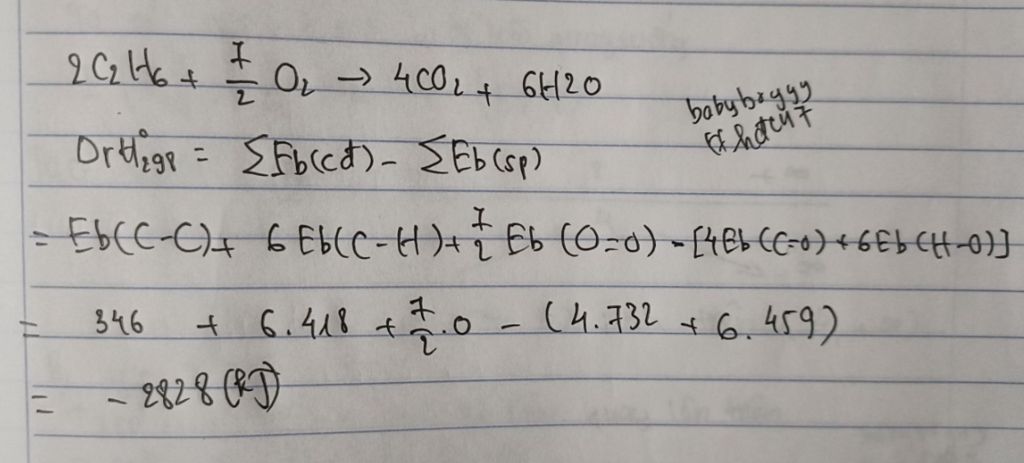 2C2H6 + 7/2 O2 → 4CO2 + 6H2O
babyboyyy
ΔrH°298 = ΣEb(cđ) - ΣEb(sp)
= Eb(C-C) + 6 Eb(C-H) + 7/2 Eb (O=O) - [4Eb(C=O) + 6Eb(H-O)]
= 346 + 6.418 + 7/2.0 - (4.732 + 6.459)
= -2828 (kJ)